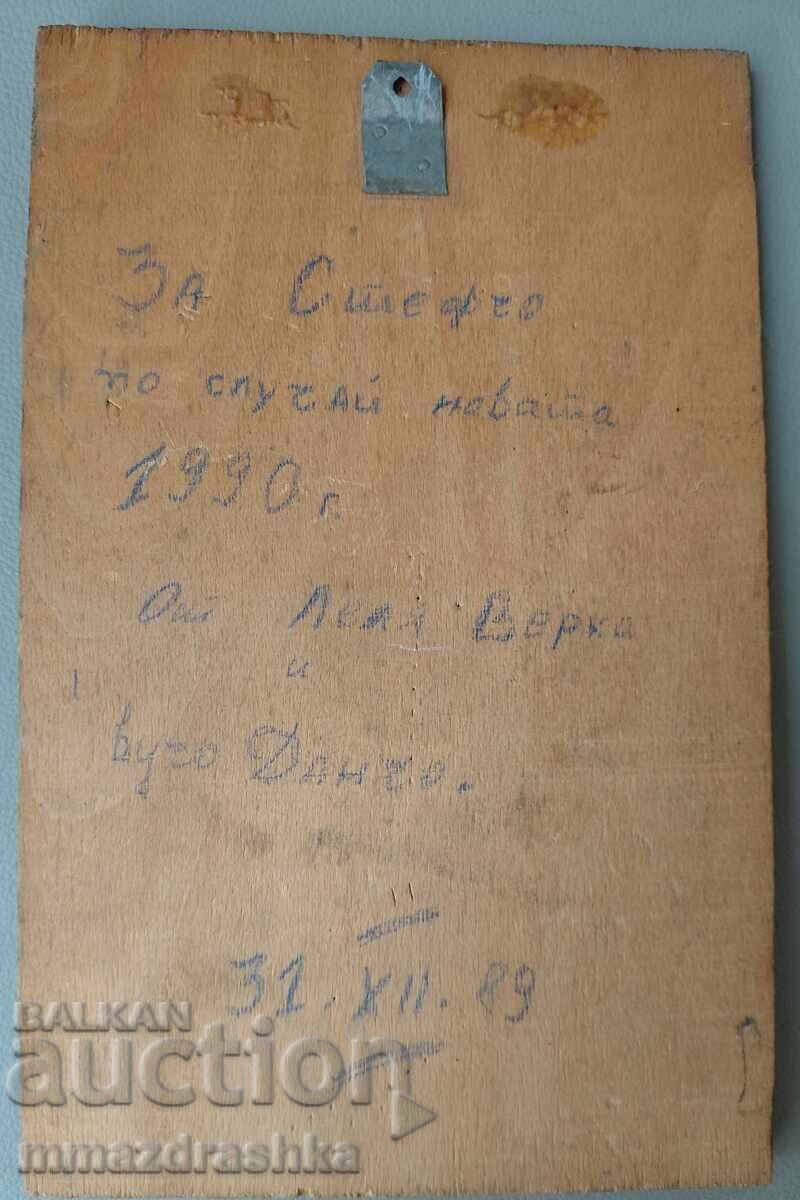 За Стефчо
по случай новата
1990 г.
От Леля Верка
и
вучо Данчо.
31. XII. 89
BALKAN
auction
mmazdrashka